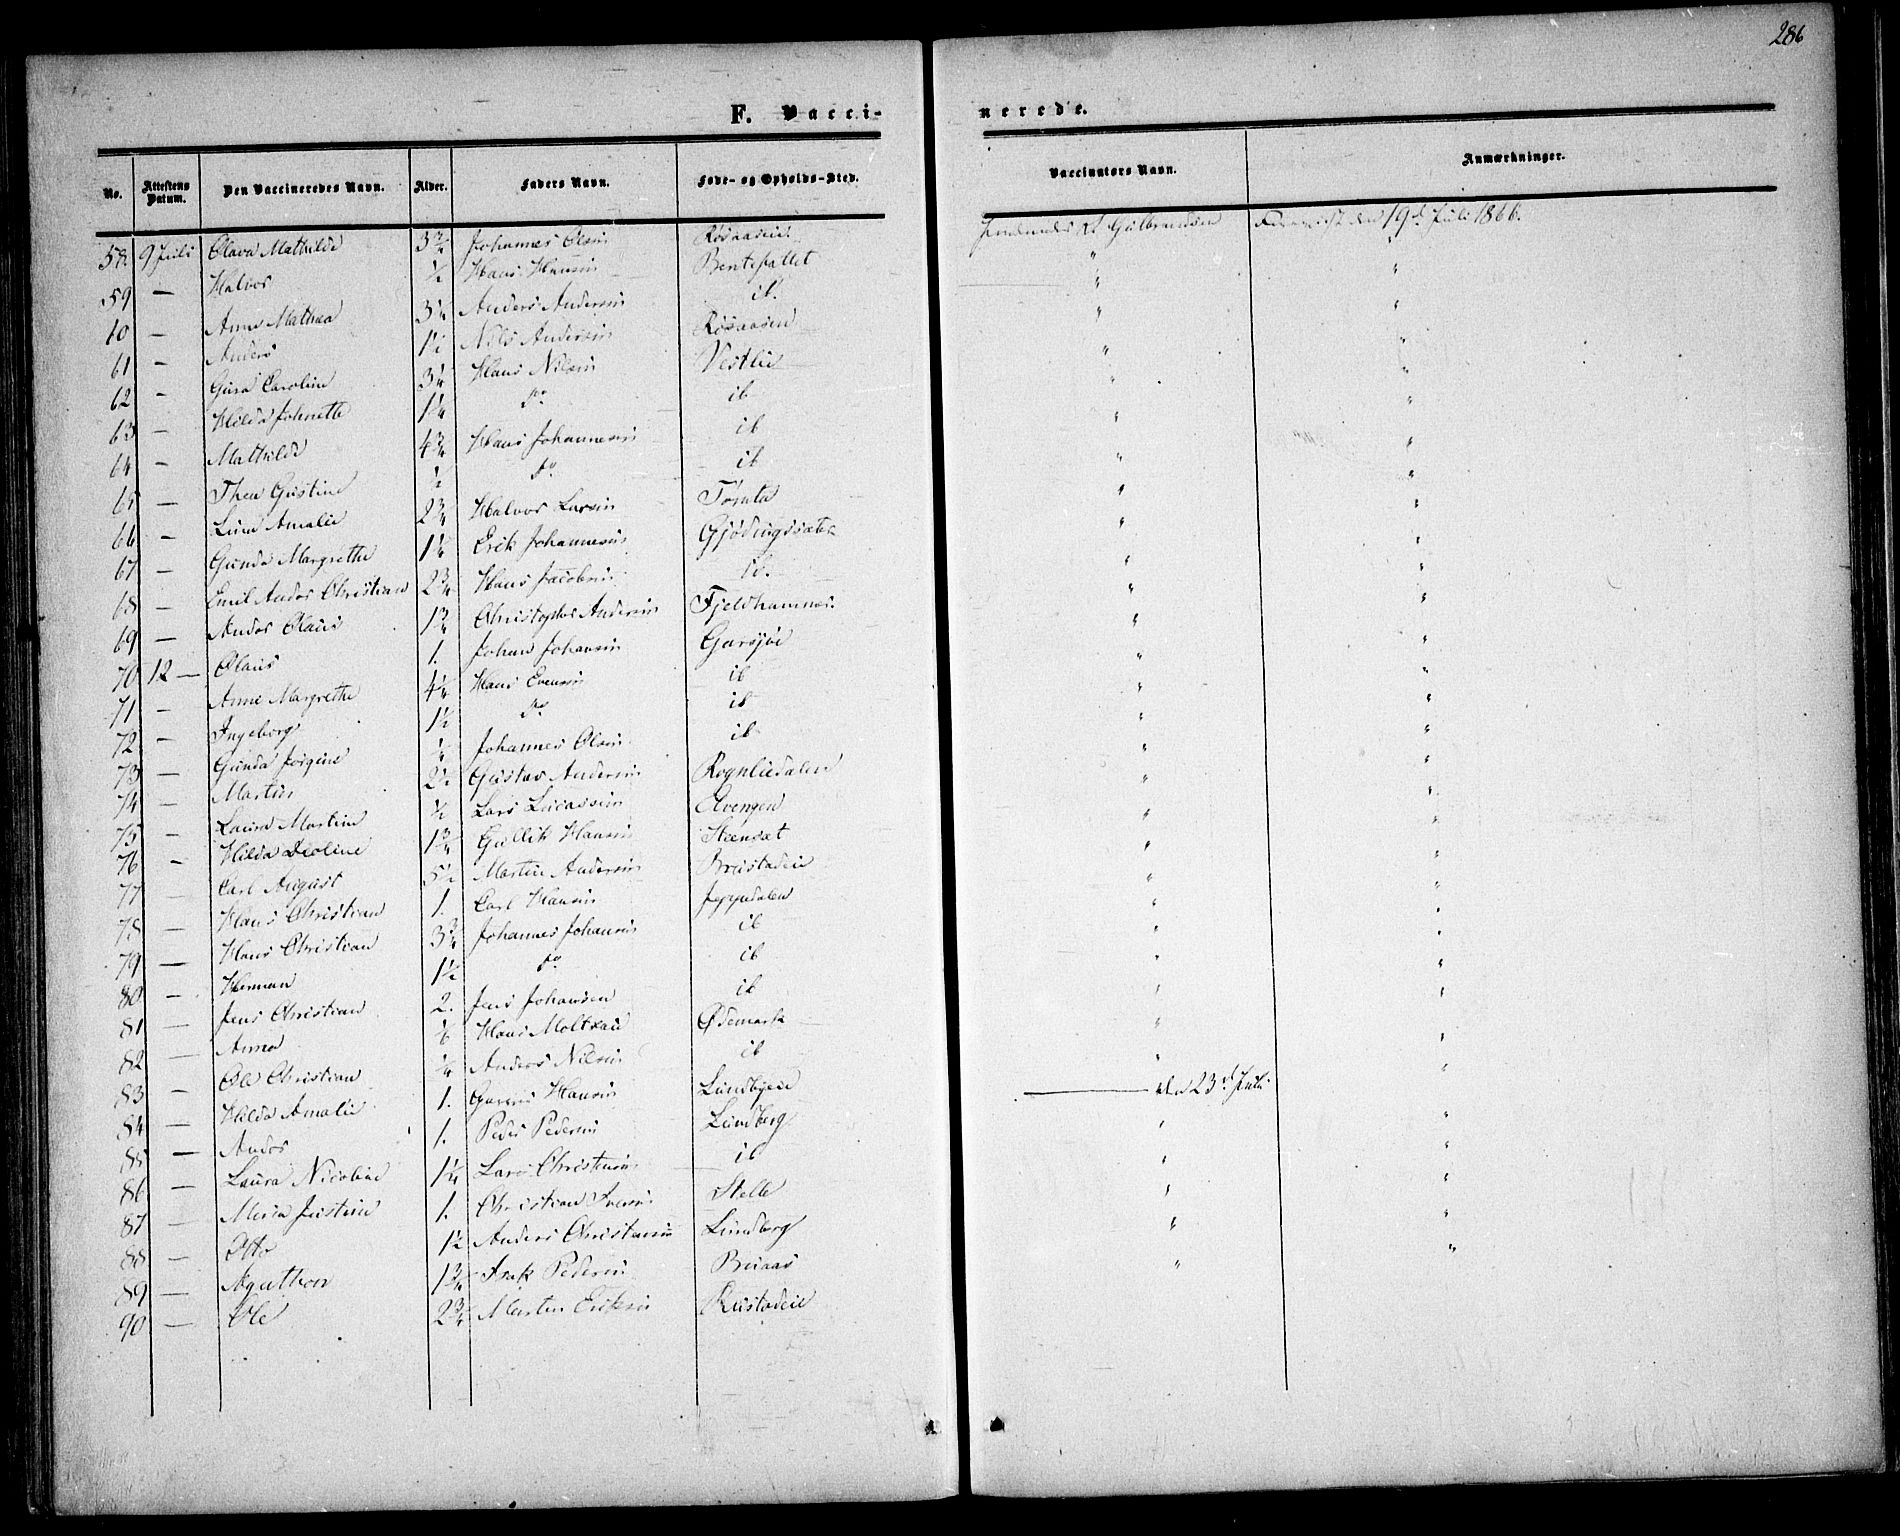 286
F. Vaccinerede.
No. Attestens Datum. Den Vaccineredes Navn. Alder. Faders Navn. Føde- og Opholds-Sted. Vaccinators Navn. Anmærkninger.
58. 9 Juli Olava Mathilde 3 3/4 Johannes Olsen Røsaaseie Gulbrandsen den 19de Juli 1866.
59 — Halvor 1/2 Hans Hansen " "
60 — Anne Mathea 3 1/4 Anders Andersen ib. " "
61 — Anders 1 1/2 Nils Andersen Røsaasen " "
62 — Caroline 3 1/4 Hans Nilsen Vestlie " "
63 — Hilda Johnette 1 1/4 do ib " "
64 — Mathilde 4 3/4 Hans Johannesen ib " "
65 — Thea Gustine 1/2 do ib " "
66 — Amalie 2 3/4 Halvor Larsen Tømta " "
67 — Gunda Margrethe 1 1/4 Erik Johannesen Gjødingssæter " "
68 — Emil Anders Christian 2 3/4 Hans Jacobsen ib. " "
69 — Anders Olaus 1 3/4 Christopher Andersen Fjeldhammer " "
70 12 — Olaus 1. Johan Johansen Garsjøe " "
71 — Anne Margrethe 4 1/4 Hans Evensen ib " "
72 — Ingeborg 1 1/2 do ib " "
73 — Gunda Jorgine 1/4 Johannes Olsen ib " "
74 — Martin 2 1/2 Gustav Andersen Rognliedalen " "
75 — Laura Martine 1/2 Lars Lucassen Elvengen " "
76 — Hilda 1 3/4 Gullik Hansen Steensæt " "
77 — Carl August 5 1/2 Martin Andersen " "
78 — Hans Christian 1. Carl Hansen Jeppedalen " "
79 — Hans Christian 3 3/4 Johannes Johansen ib " "
80 — Herman 1 1/2 do ib " "
81 — Jens Christian 2. Jens Johansen ib " "
82 — Anna 1/6 Hans Ødemark " "
83 — Ole Christian 1/4 Anders Nilsen ib " "
84 — Hilda Amalie 1. Hansen Lundbyeie — den 23de Juli "
85 — Anders 1. Peder Pedersen Lundberg " "
86 — Laura Nicoline 1 1/4 Lars Christensen ib " "
87 — Justine 1. Christian Iversen Stelle " "
88 — Otto 1 1/2 Anders Christensen Lundberg " "
89 — Agathon 1 3/4 Isak Pedersen " "
90 — Ole 2 3/4 Martin Eriksen Rustadeie